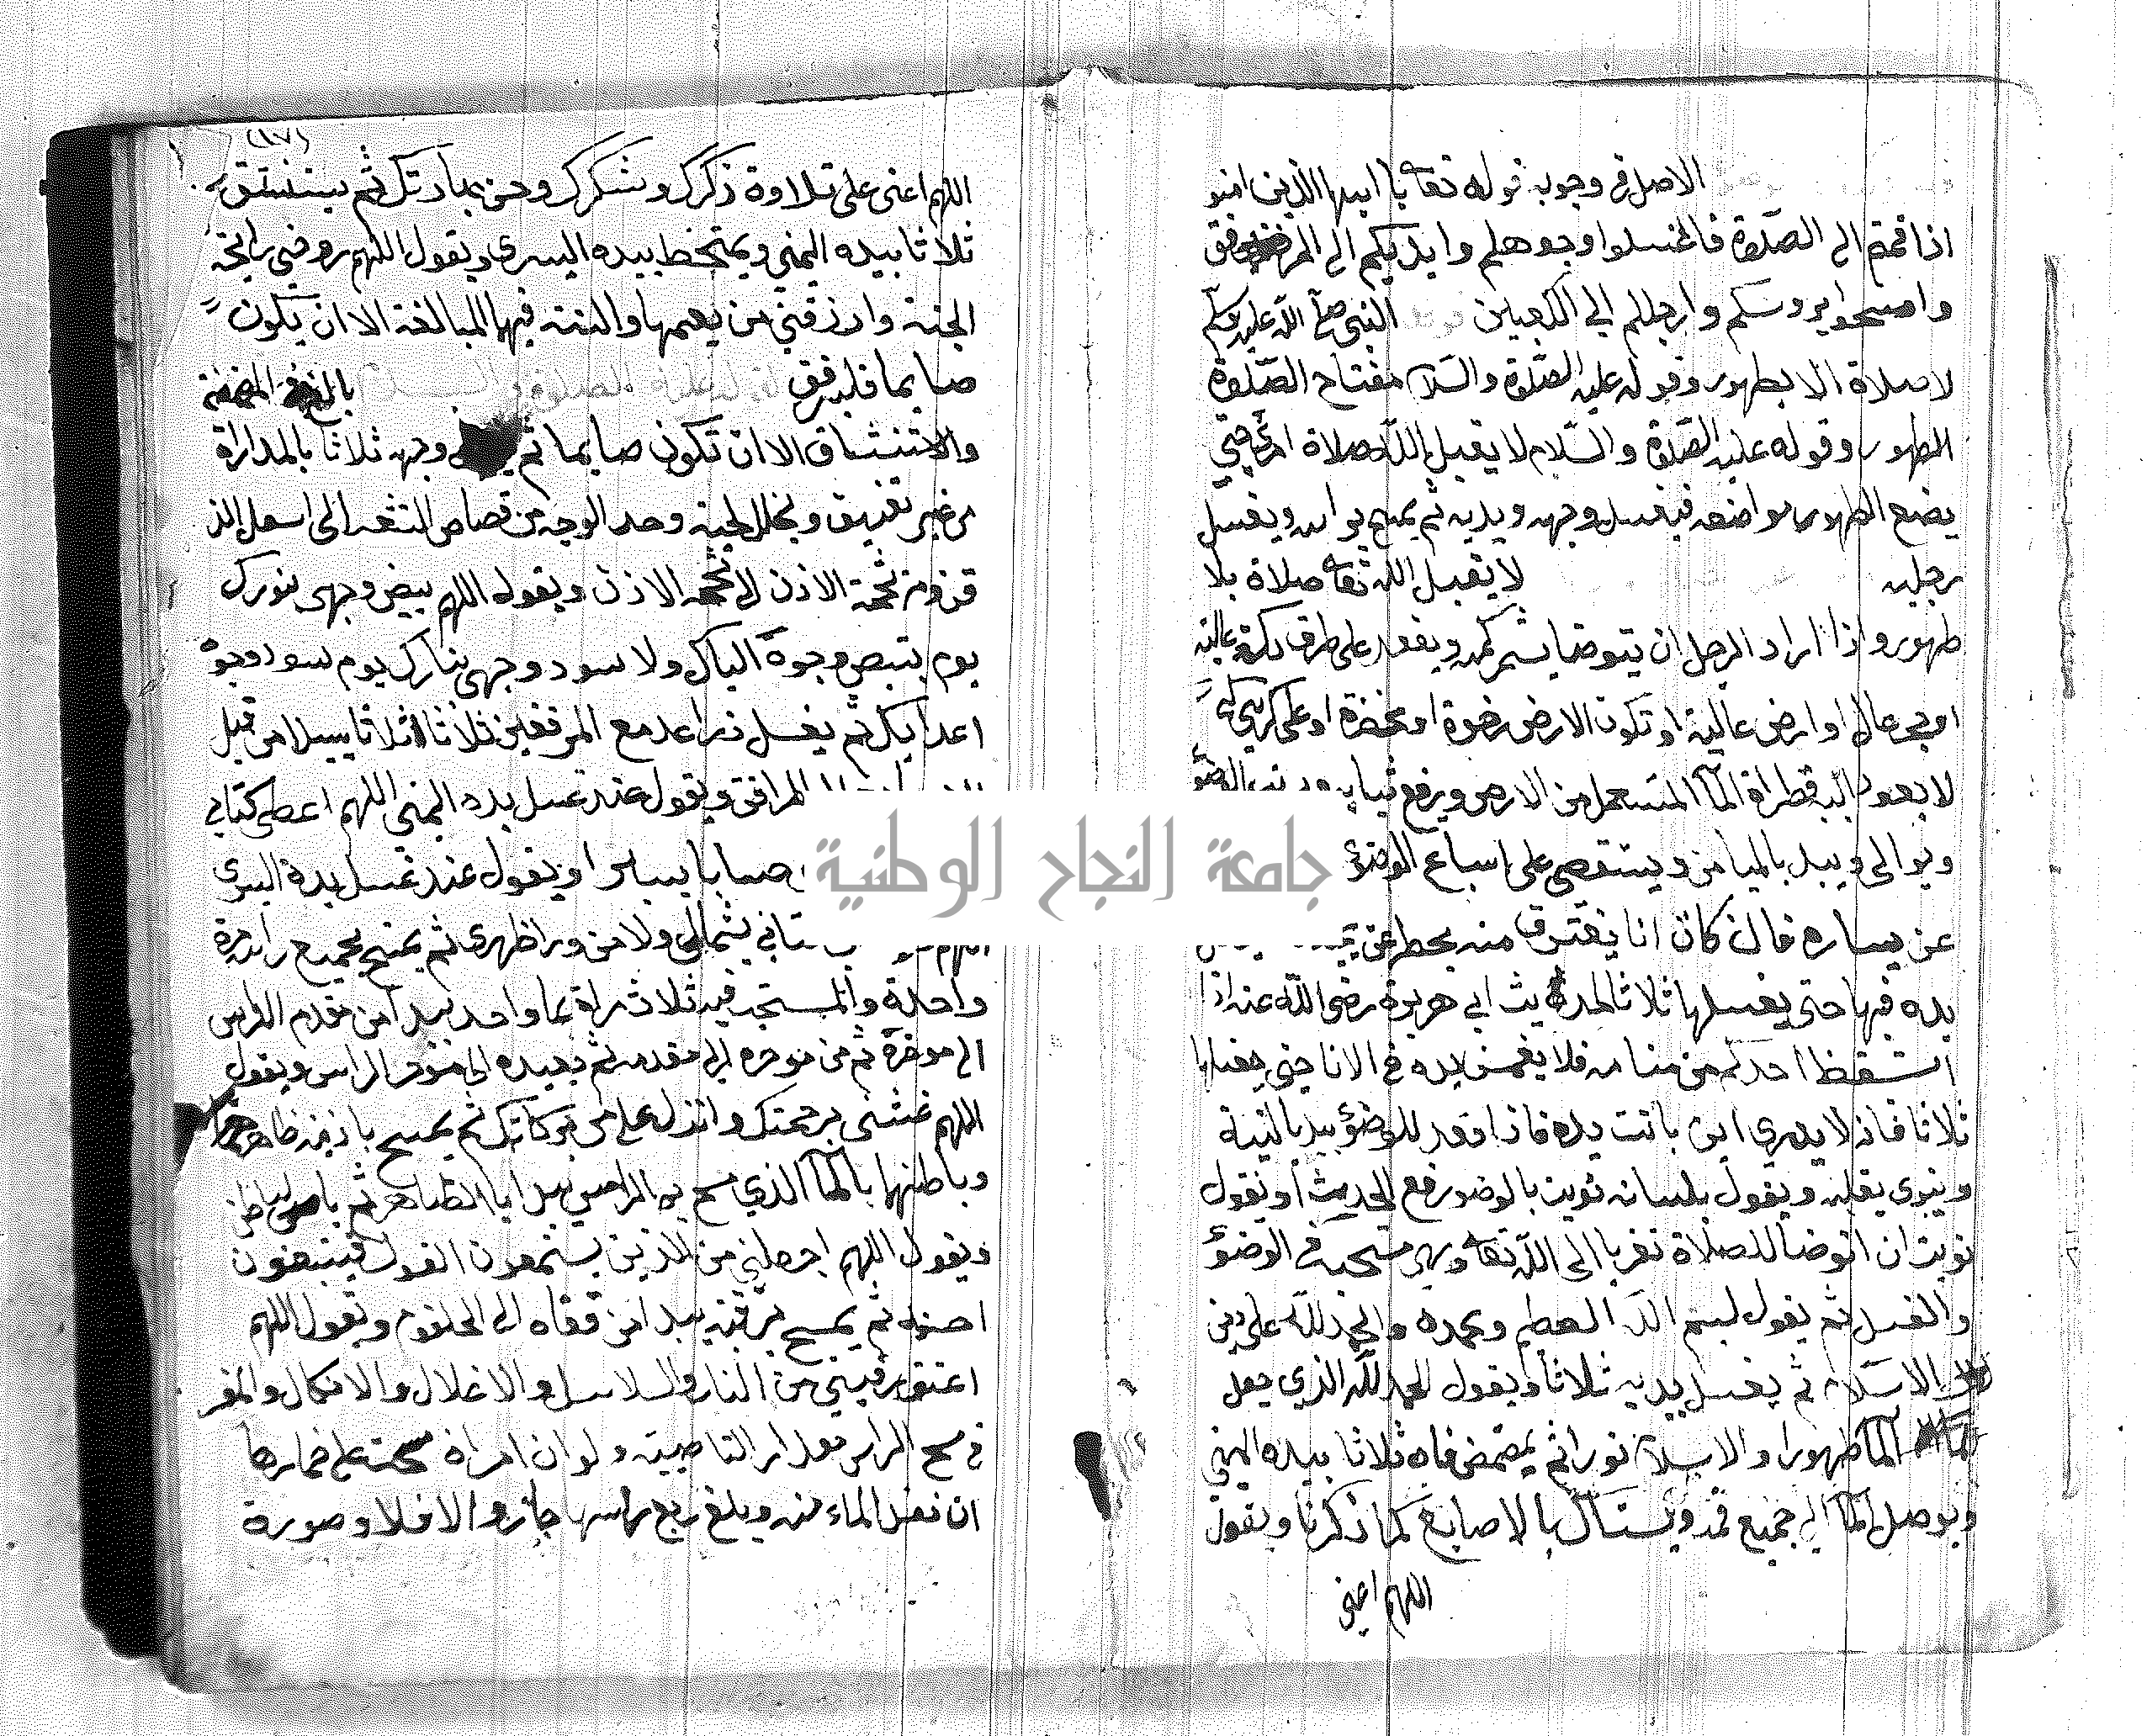 الاصل في وجوبه قوله تعا يا ايها الذين امنو
اذا قمتم الى الصلوة فاغسلوا وجوهكم وايديكم الى المرافق
وامسحوا بروسكم وارجلكم الى الكعبين النبي صلى الله عليه وسلم
لا صلاة الا بطهور وقوله عليه الصلوة والسلام مفتاح الصلوة
الطهور وقوله عليه الصلوة والسلام لا يقبل الله صلاة امرئ حتى
يضع الطهور مواضعه فيغسل وجهه ويديه ثم يمسح براسه ويغسل
رجليه لا يقبل الله تعا صلاة بلا
طهور واذا اراد الرجل ان يتوضا يشمر كمه ويقعد على طرف دكة عالية
او حجر عال او ارض عالية او تكون الارض رخوة او محضرة او على كرسي كي
لا يعود اليه قطراة الما المستعمل من الارض ويرفع ثيابه
ويوالى ويبدا بالميامن ويستقصى على اسباغ الوضؤ
عن يساره فان كان انا يغترف منه يحطه عن
يده فيها حتى يغسلها ثلاثا لحديث ابي هريرة رضى الله عنه اذا
استيقظ احدكم من منامه فلا يغمس يده في الانا حتى يغسلها
ثلاثا فانه لا يدري اين باتت يده فاذا قعد للوضؤ يبدا بالنية
وينوى بقلبه ويقول بلسانه نويت بالوضو رفع الحديث او يقول
نويت ان اتوضا للصلاة تقربا الى الله تعا وهي مستحبة في الوضؤ
والغسل ثم يقول بسم الله العظيم وبحمده والحمد لله على دين
الاسلام ثم يغسل يديه ثلاثا ويقول الحمد لله الذي جعل
الما طهورا والاسلام نورا ثم يمضمض فاه ثلاثا بيده اليمنى
ويوصل الما الى جميع فمه ويستاك بالاصابع كما ذكرنا ويقول
اللهم اعني
(١٧)
اللهم اعنى على تلاوة ذكرك وشكرك وحسن عبادتك ثم يستنشق
ثلاثا بيده اليمنى ويمتخط بيده اليسرى ويقول اللهم روحني رايحة
الجنة وارزقني من نعيمها والسنة فيهما المبالغة الا ان يكون
صايما فليرفق بالغ في المضمضة
والاستنشاق الا ان تكون صايما ثم وجهه ثلاثا بالمداراة
من غير تفريق ويخلل لحيته وحد الوجه من قصاص الشعر الى اسفل الذ
قن ومن شحمة الاذن الى شحمة الاذن ويقول اللهم بيض وجهى بنورك
يوم تبيض وجوه اولياك ولا تسود وجهي بنارك يوم تسود وجوه
اعدايك ثم يغسل ذراعيه مع المرفقين ثلاثا ثلاثا يسيلا من قبل
المرافق ويقول عند غسل يده اليمنى اللهم اعطني كتابي
حسابا يسيرا ويقول عند غسل يده اليسرى
اللهم كتابي بشمالي ولا من ورا ظهرى ثم يمسح بجميع راسه مرة
واحدة والمستحب فيه ثلاث مراة بما واحد يبدا من مقدم الراس
الى موخره ثم من موخره الى مقدمه ثم يعيده الى موخر الراس ويقول
اللهم غشني برحمتك وانزل علي من بركاتك ثم يمسح باذنيه ظاهرهما
وباطنهما بالما الذي مسح به الراس يبدا بالظاهر ثم بالباطن
ويقول اللهم اجعلني من الذين يستمعون القول فيتبعون
احسنه ثم يمسح برقبته يبدا من قفاه الى الحلقوم ويقول اللهم
اعتق رقبتي من النار والسلاسل والاغلال والانكال والمفر
في مسح الراس مقدار الناصية ولو ان امراة مسحت على خمارها
ان نفذ الماء منه وبلغ ربع راسها جاز والا فلا وصورة
جامعة النجاح الوطنية